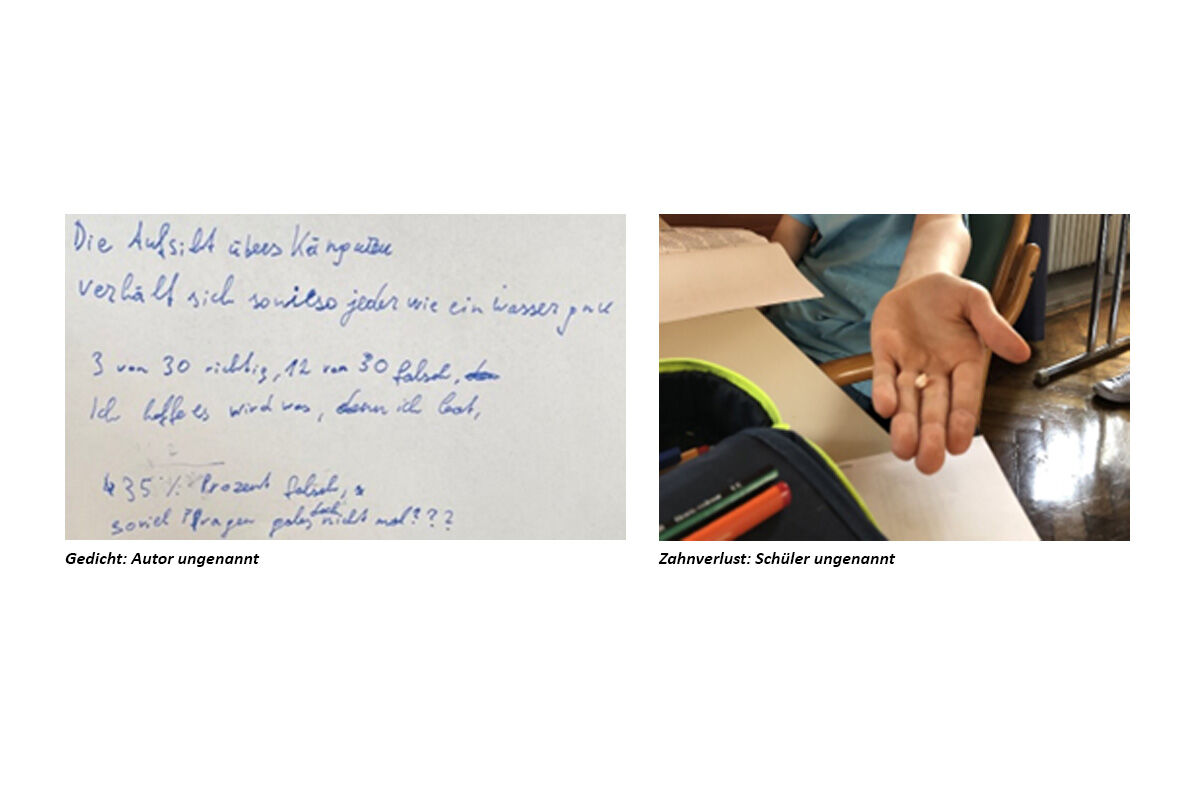 Die Aufsicht übers Känguru
verhält sich sowieso jeder wie ein
3 von 30 richtig, 12 von 30 falsch,
Ich hoffe es wird was, denn ich
35 % Prozent falsch,
soviel Fragen gabs doch nicht mal???
Gedicht: Autor ungenannt
Zahnverlust: Schüler ungenannt